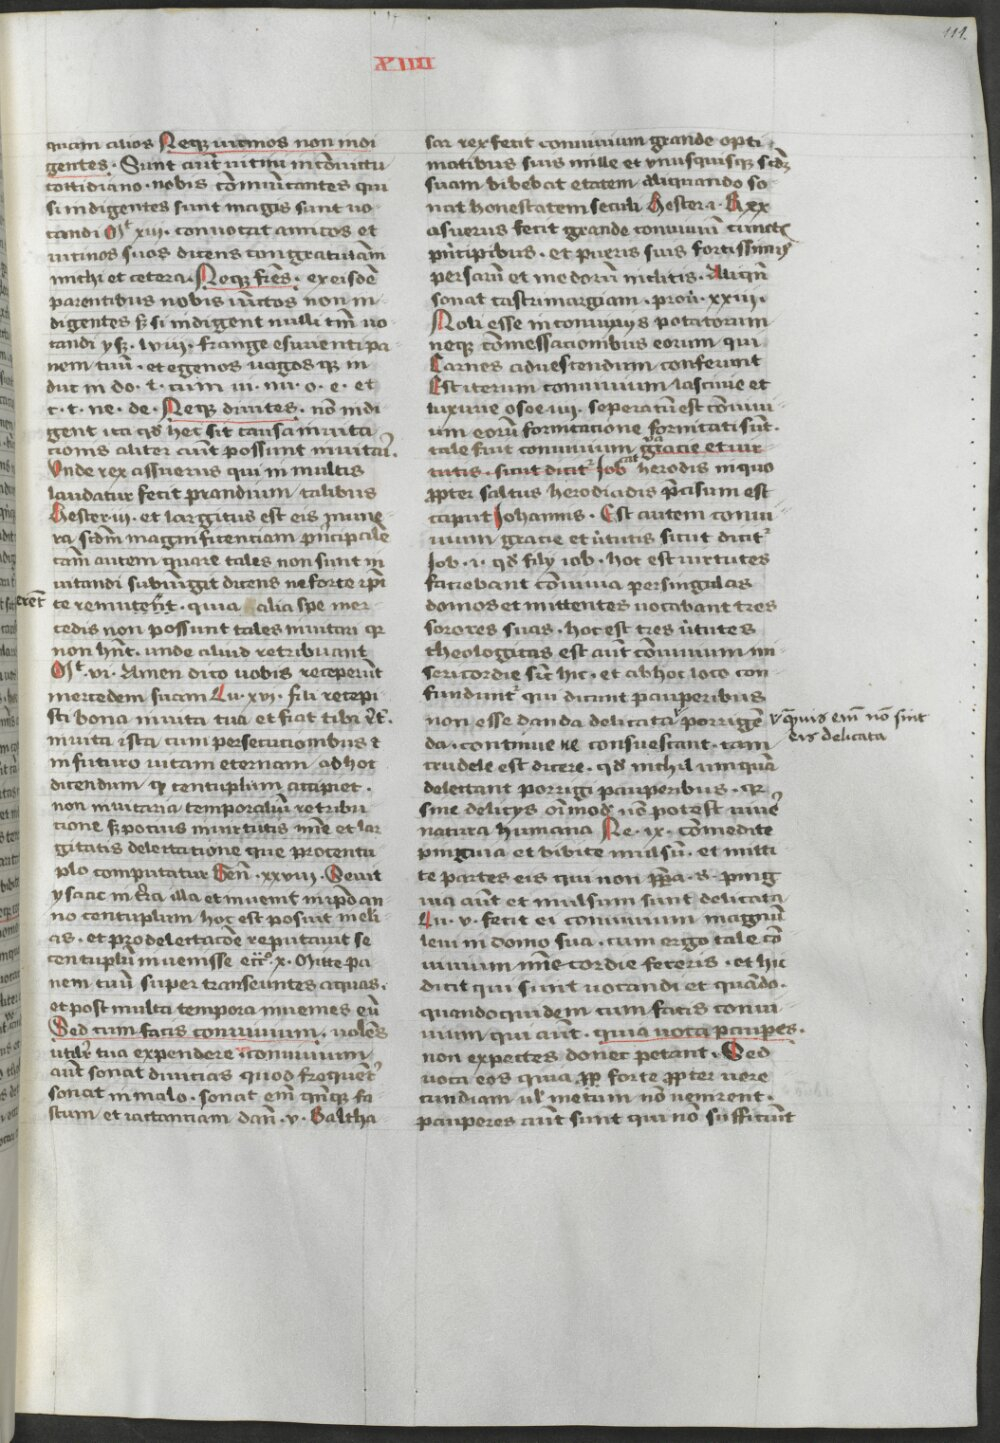 111.
XIIII
quam alios Neq; vicinos non indi
gentes. Sunt aut vicini in covictu
cottidiano. nobis comuicantes qui
si indigentes sunt magis sunt uo
candi Mt xiii. conuocat amicos et
uicinos suos dicens congratulami
michi et cetera. Neq; fres. ex eisde
parentibus nobis iuctos non in
digentes s; si indigent nulli tm uo
candi ys. lviii. frange esurienti pa
nem tuu. et egenos uagos q; in
duc in do. t. cum ui. nu. o. e. et
c. t. ne. de. Neq; diuites. no indi
gent ita qd hec sit causa inuita
cionis aliter aut possunt inuitari.
Unde rex assuerus qui in multis
laudatur fecit prandium talibus
Hester. ii. et largitus est eis mune
ra scdm magnificentiam pncipale
tam autem quare tales non sunt in
uitandi subiungit dicens ne forte ipi
erent
te reinuitent. quia alia spe mer
cedis non possunt tales inuitari qr
non hnt. unde aliud retribuant
Mt. vi. Amen dico uobis receperut
mercedem suam Lu. xvi. fili recepi
sti bona in uita tua et fiat tibi
in uita ista cum persecucionibus t
in futuro uitam eternam ad hoc
dicendum q centuplum accipiet.
non inuitaria temporaliu retribu
cione s; pocius in uirtutis mie et lar
gitatis delectatione que pro centu
plo computatur Gen. xxvi. Seuit
ysaac in tra illa et inuenit in ipo an
no centuplum hoc est posuit in eli
as. et pro delectacoe reputauit se
centuplu inuenisse ecc. x. Mitte pa
nem tuu super transeuntes aquas.
et post multa tempora inuenies eu
Sed cum facis conuiuium. uoles
utilr tua expendere conuiuium
aut sonat diuicias quod frequent
sonat in malo. sonat em qnq; fa
stum et iactantiam dan. v. Baltha
sar rex fecit conuiuium grande opti
matibus suis mille et vnusquisq; scd;
suam bibebat etatem Aliquando so
nat honestatem seculi Hester. i. Rex
asuerus fecit grande conuiuiu cunctis
pricipibus. et pueris suis fortissimis
persaru et medoru inclitis. Aliqn
sonat castrimargiam. prou. xxiii.
Noli esse in conuiuiis potatorum
neq; comessacionibus eorum qui
Carnes ad vescendum conferunt
Est iterum conuiuium lasciuie et
luxurie osee. iiii. seperatu est conui
um eoru fornicatione fornicati sut.
tale fuit conuiuium gracie et uir
tutis. sicut dicit Iob herodis in quo
ppter saltus herodiadis pcisum est
caput Iohannis. Est autem conui
uium gracie et ututis sicut dicit
Iob. i. qd filij iob. hoc est uirtutes
faciebant conuiuia per singulas
domos et mittentes uocabant tres
sorores suas. hoc est tres ututes
theologicas est aut conuiuium mi
sericordie sut hic. et ab hoc loco con
fundunt qui dicunt pauperibus
non esse danda delicata porrige
v quis em no sint
eis delicata
da. continue ne consuescant. tam
crudele est dicere. qd nichil umqua
delectans porrigi pauperibus. qr
sine delicijs oimod no potest uiue
natura humana Ne. ix. comedite
pinguia et bibite mulsu. et mitti
te partes eis qui non ppa. s. ping
uia aut et mulsum sunt delicata
Lu. v. fecit ei conuiuium magnu
leui in domo sua. cum ergo tale co
uiuium mie cordie feceris. et hic
dicit qui sunt uocandi et quado.
quandoquidem cum facis conui
uium qui aut. quia uoca paupes.
non expectes donec petant. Sed
uoca eos quia pp forte ppter uere
cundiam ul metum no uenirent.
pauperes aut sunt qui no sufficiut